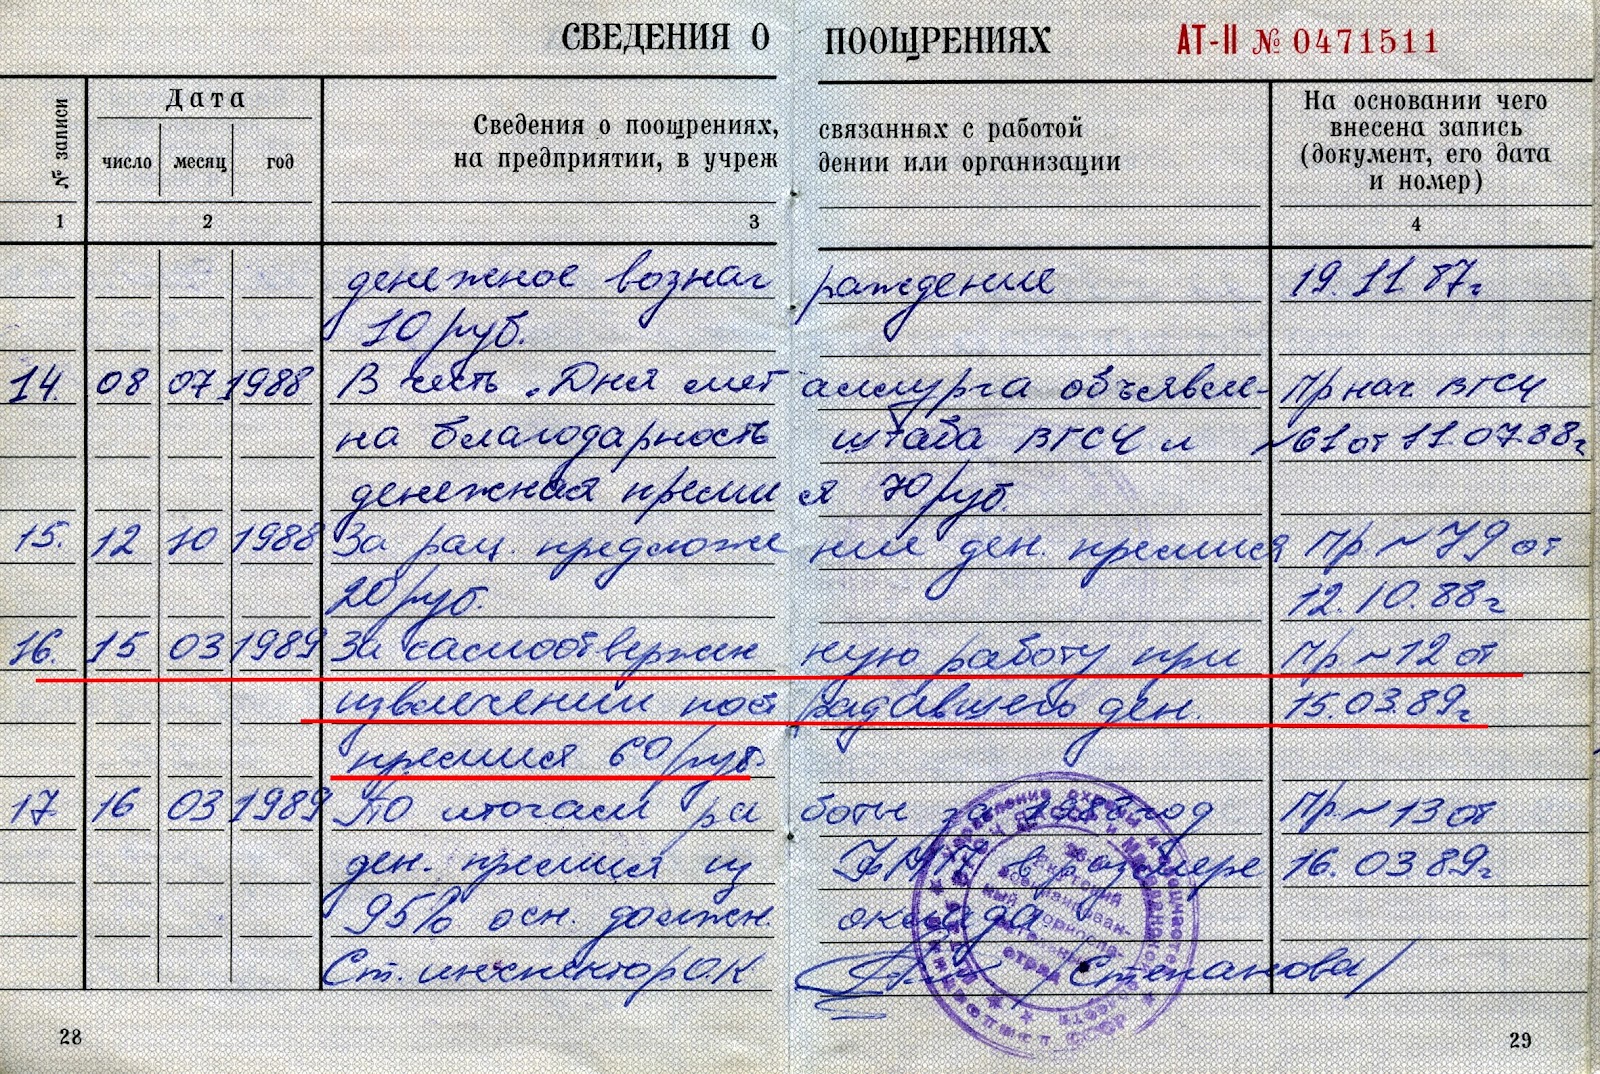 СВЕДЕНИЯ О ПООЩРЕНИЯХ АТ-II № 0471511
№ записи
Дата
число месяц год
Сведения о поощрениях, связанных с работой
на предприятии, в учреж дении или организации
На основании чего
внесена запись
(документ, его дата
и номер)
1 2 3 4
денежное вознаг раждение 19.11.87г
10 руб.
14. 08 07 1988 В честь „Дня мет аллурга объявле- Пр нач. ВГСЧ
на благодарность штаба ВГСЧ и №61 от 11.07.88г
денежная преми я 70 руб.
15. 12 10 1988 За рац. предложе ние ден. премия Пр №79 от
20 руб. 12.10.88г
16. 15 03 1989 За самоотвержен ную работу при Пр №12 от
извлечении пост радавшего ден. 15.03.89г
премия 60 руб.
17. 16 03 1989 По итогам ра боты за 1988 год Пр. №13 от
ден. премия из ФМП в размере 16.03.89г
95% осн. должн. оклада
Ст. инспектор ОК /Степанова/
отряд
СССР
28 29